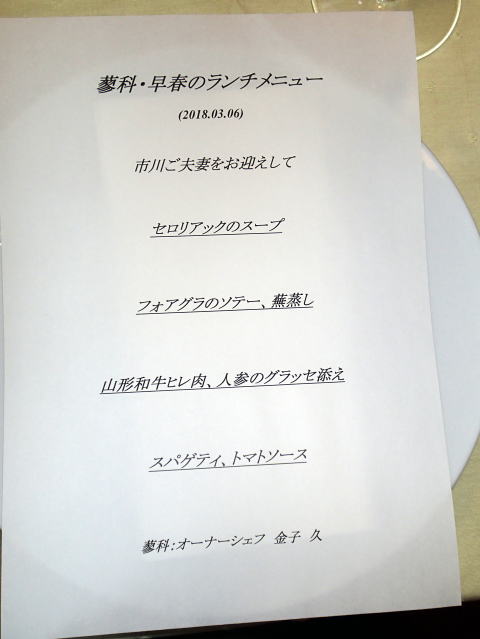 蓼科・早春のランチメニュー
(2018.03.06)
市川ご夫妻をお迎えして
セロリアックのスープ
フォアグラのソテー、蕪蒸し
山形和牛ヒレ肉、人参のグラッセ添え
スパゲティ、トマトソース
蓼科：オーナーシェフ　金子　久